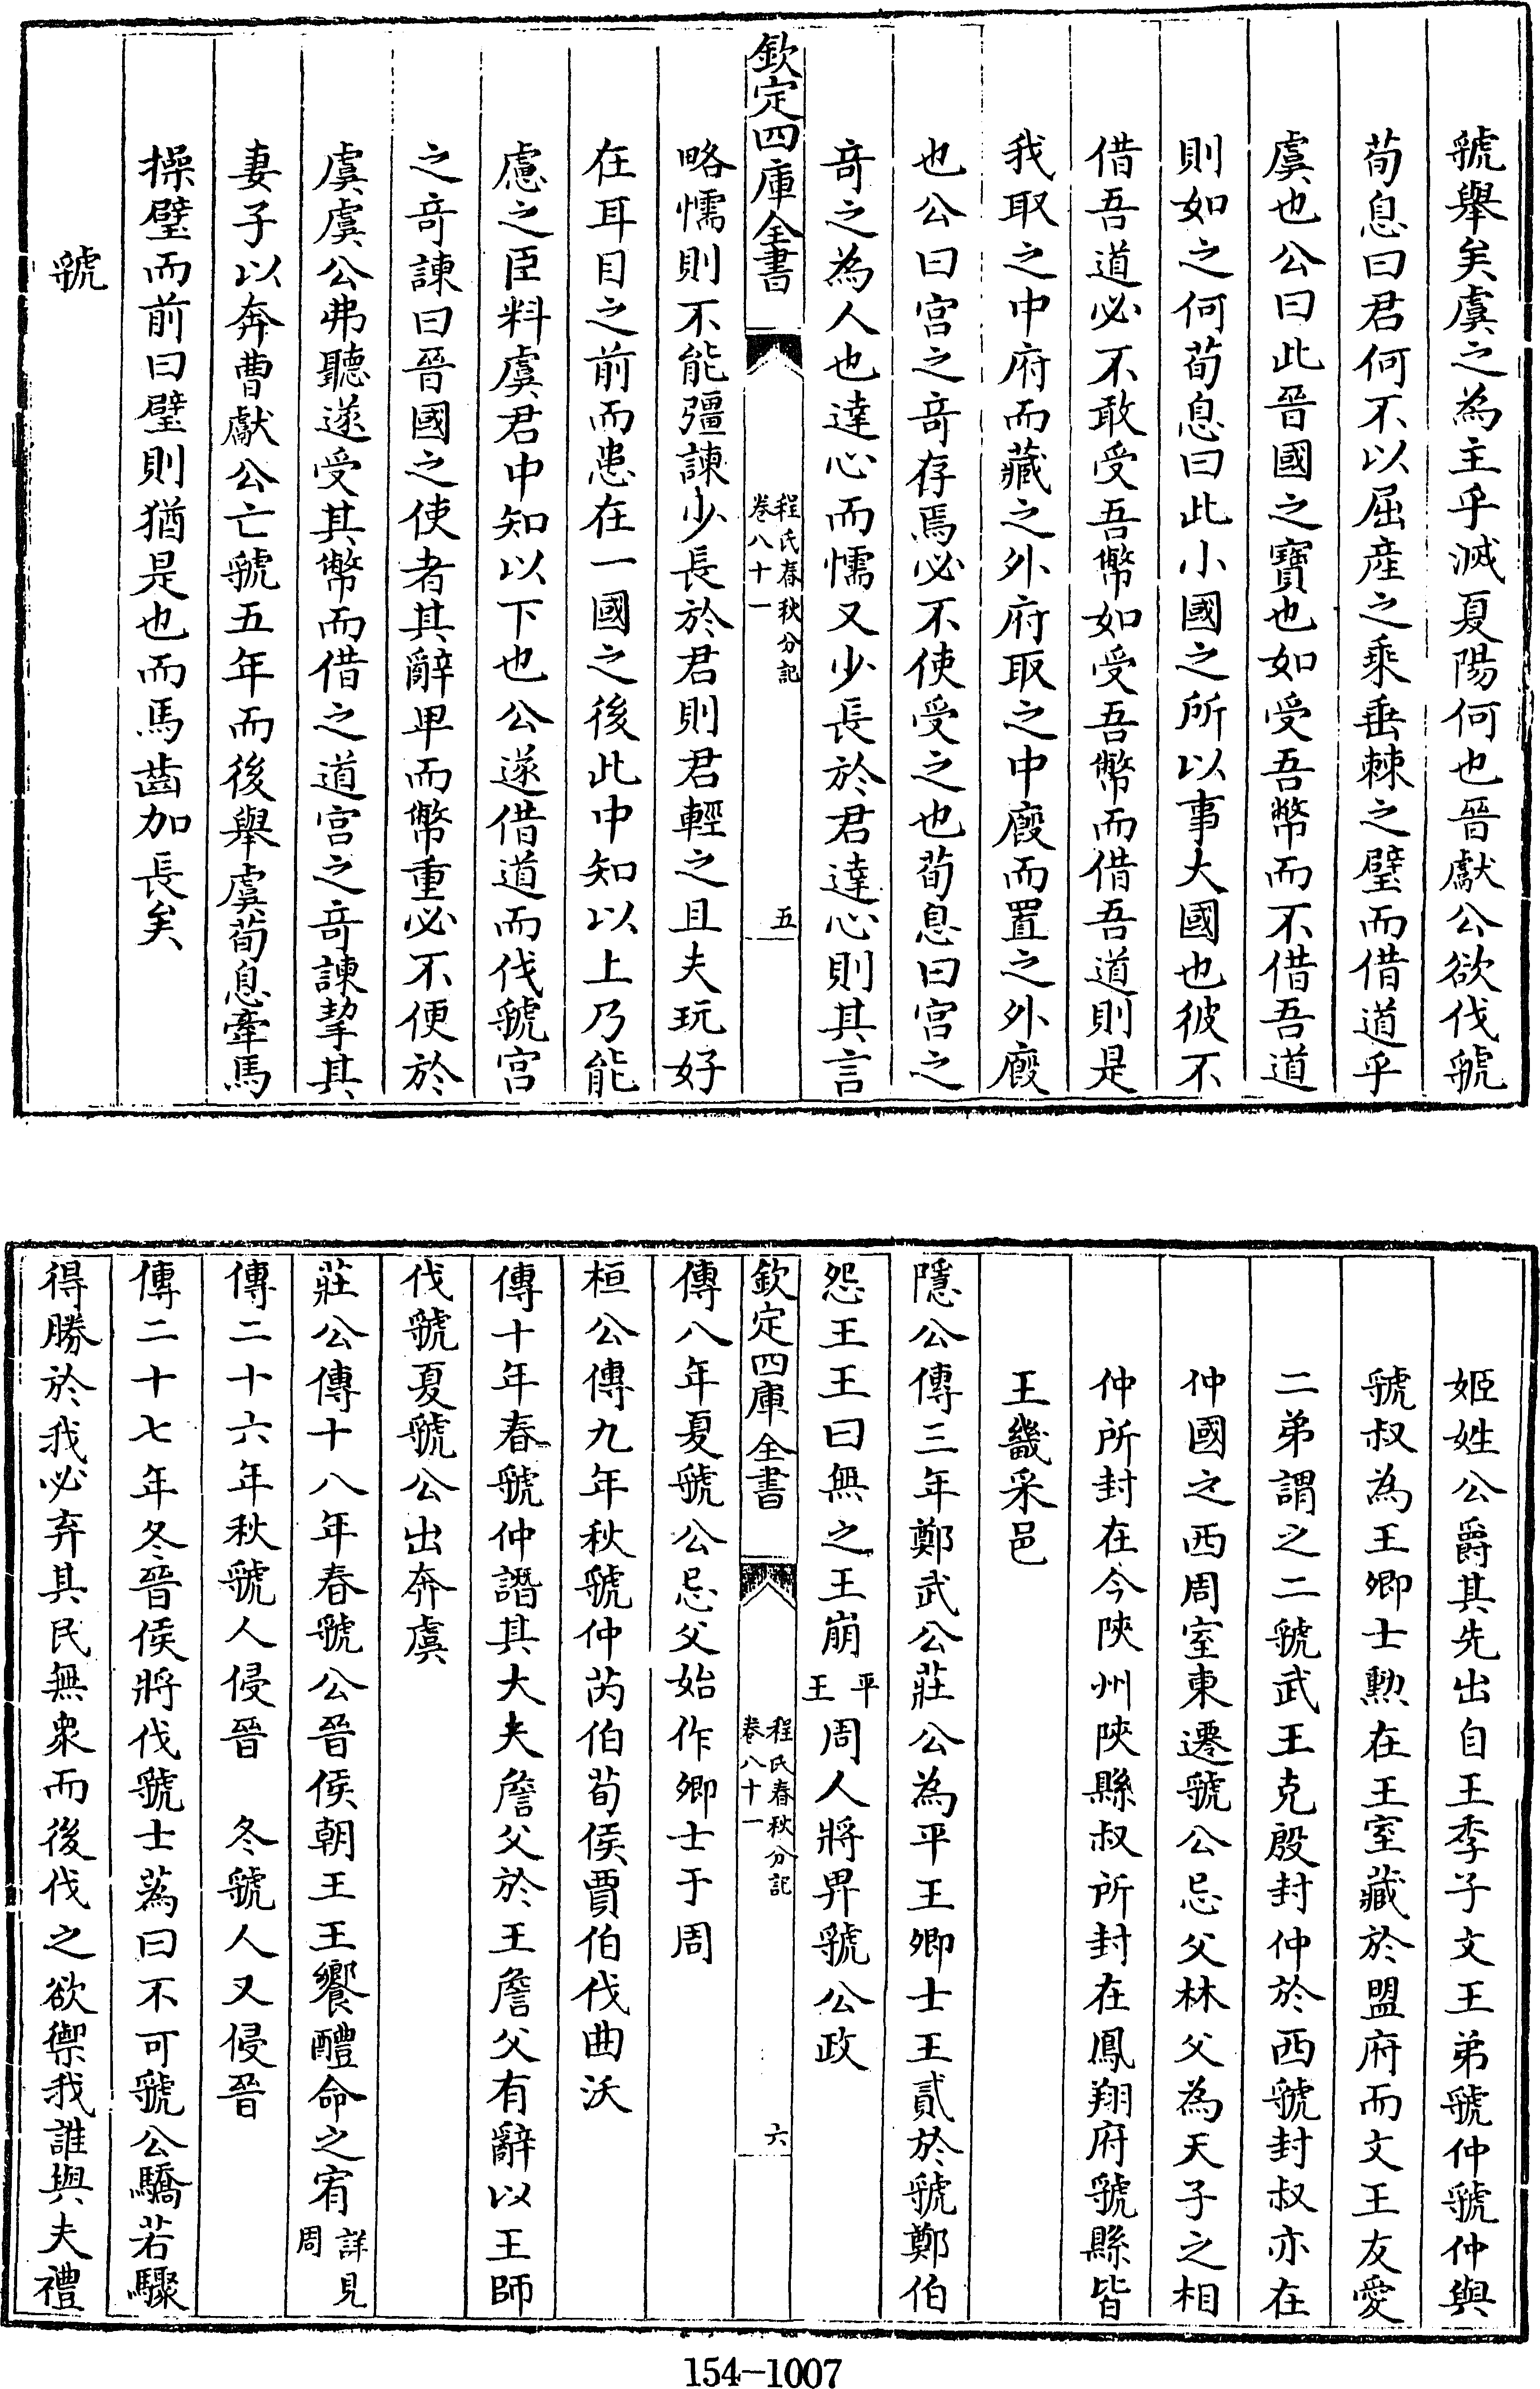 虢舉矣虞之為主乎滅夏陽何也晉獻公欲伐虢
荀息曰君何不以屈産之乘垂棘之璧而借道乎
虞也公曰此晉國之寶也如受吾幣而不借吾道
則如之何荀息曰此小國之所以事大國也彼不
借吾道必不敢受吾幣如受吾幣而借吾道則是
我取之中府而藏之外府取之中廏而置之外廏
也公曰宫之竒存焉必不使受之也荀息曰宫之
竒之為人也達心而懦又少長於君達心則其言
欽定四庫全書
程氏春秋分記
卷八十一
五
略懦則不能彊諫少長於君則君輕之且夫玩好
在耳目之前而患在一國之後此中知以上乃能
慮之臣料虞君中知以下也公遂借道而伐虢宫
之竒諫曰晉國之使者其辭卑而幣重必不便於
虞虞公弗聽遂受其幣而借之道宫之竒諫挈其
妻子以奔曹獻公亡虢五年而後舉虞荀息牽馬
操璧而前曰璧則猶是也而馬齒加長矣
虢
姬姓公爵其先出自王季子文王弟虢仲虢仲與
虢叔為王卿士勲在王室藏於盟府而文王友愛
二弟謂之二虢武王克殷封仲於西虢封叔亦在
仲國之西周室東遷虢公忌父林父為天子之相
仲所封在今陜州陜縣叔所封在鳳翔府虢縣皆
王畿采邑
隱公傳三年鄭武公莊公為平王卿士王貳於虢鄭伯
怨王王曰無之王崩平王周人將畀虢公政
欽定四庫全書
程氏春秋分記
卷八十一
六
傳八年夏虢公忌父始作卿士于周
桓公傳九年秋虢仲芮伯荀侯賈伯伐曲沃
傳十年春虢仲譖其大夫詹父於王詹父有辭以王師
伐虢夏虢公出奔虞
莊公傳十八年春虢公晉侯朝王王饗醴命之宥詳見周
傳二十六年秋虢人侵晉　冬虢人又侵晉
傳二十七年冬晉侯將伐虢士蒍曰不可虢公驕若驟
得勝於我必弃其民無衆而後伐之欲禦我誰與夫禮
154-1007